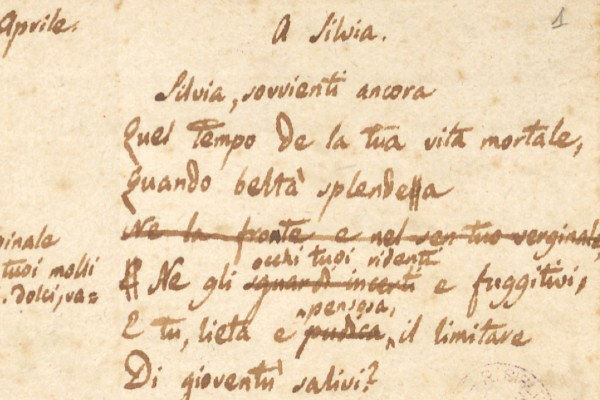 Aprile.
A Silvia.
1
Silvia, sovvienti ancora
Quel tempo de la tua vita mortale,
Quando beltà splendea
Ne la fronte e nel sen tuo verginale
occhi tuoi ridenti
Ne gli sguardi incerti e fuggitivi,
pensosa,
E tu, lieta e pudica, il limitare
Di gioventù salivi?
ginale
tuoi molli
. dolci, va=